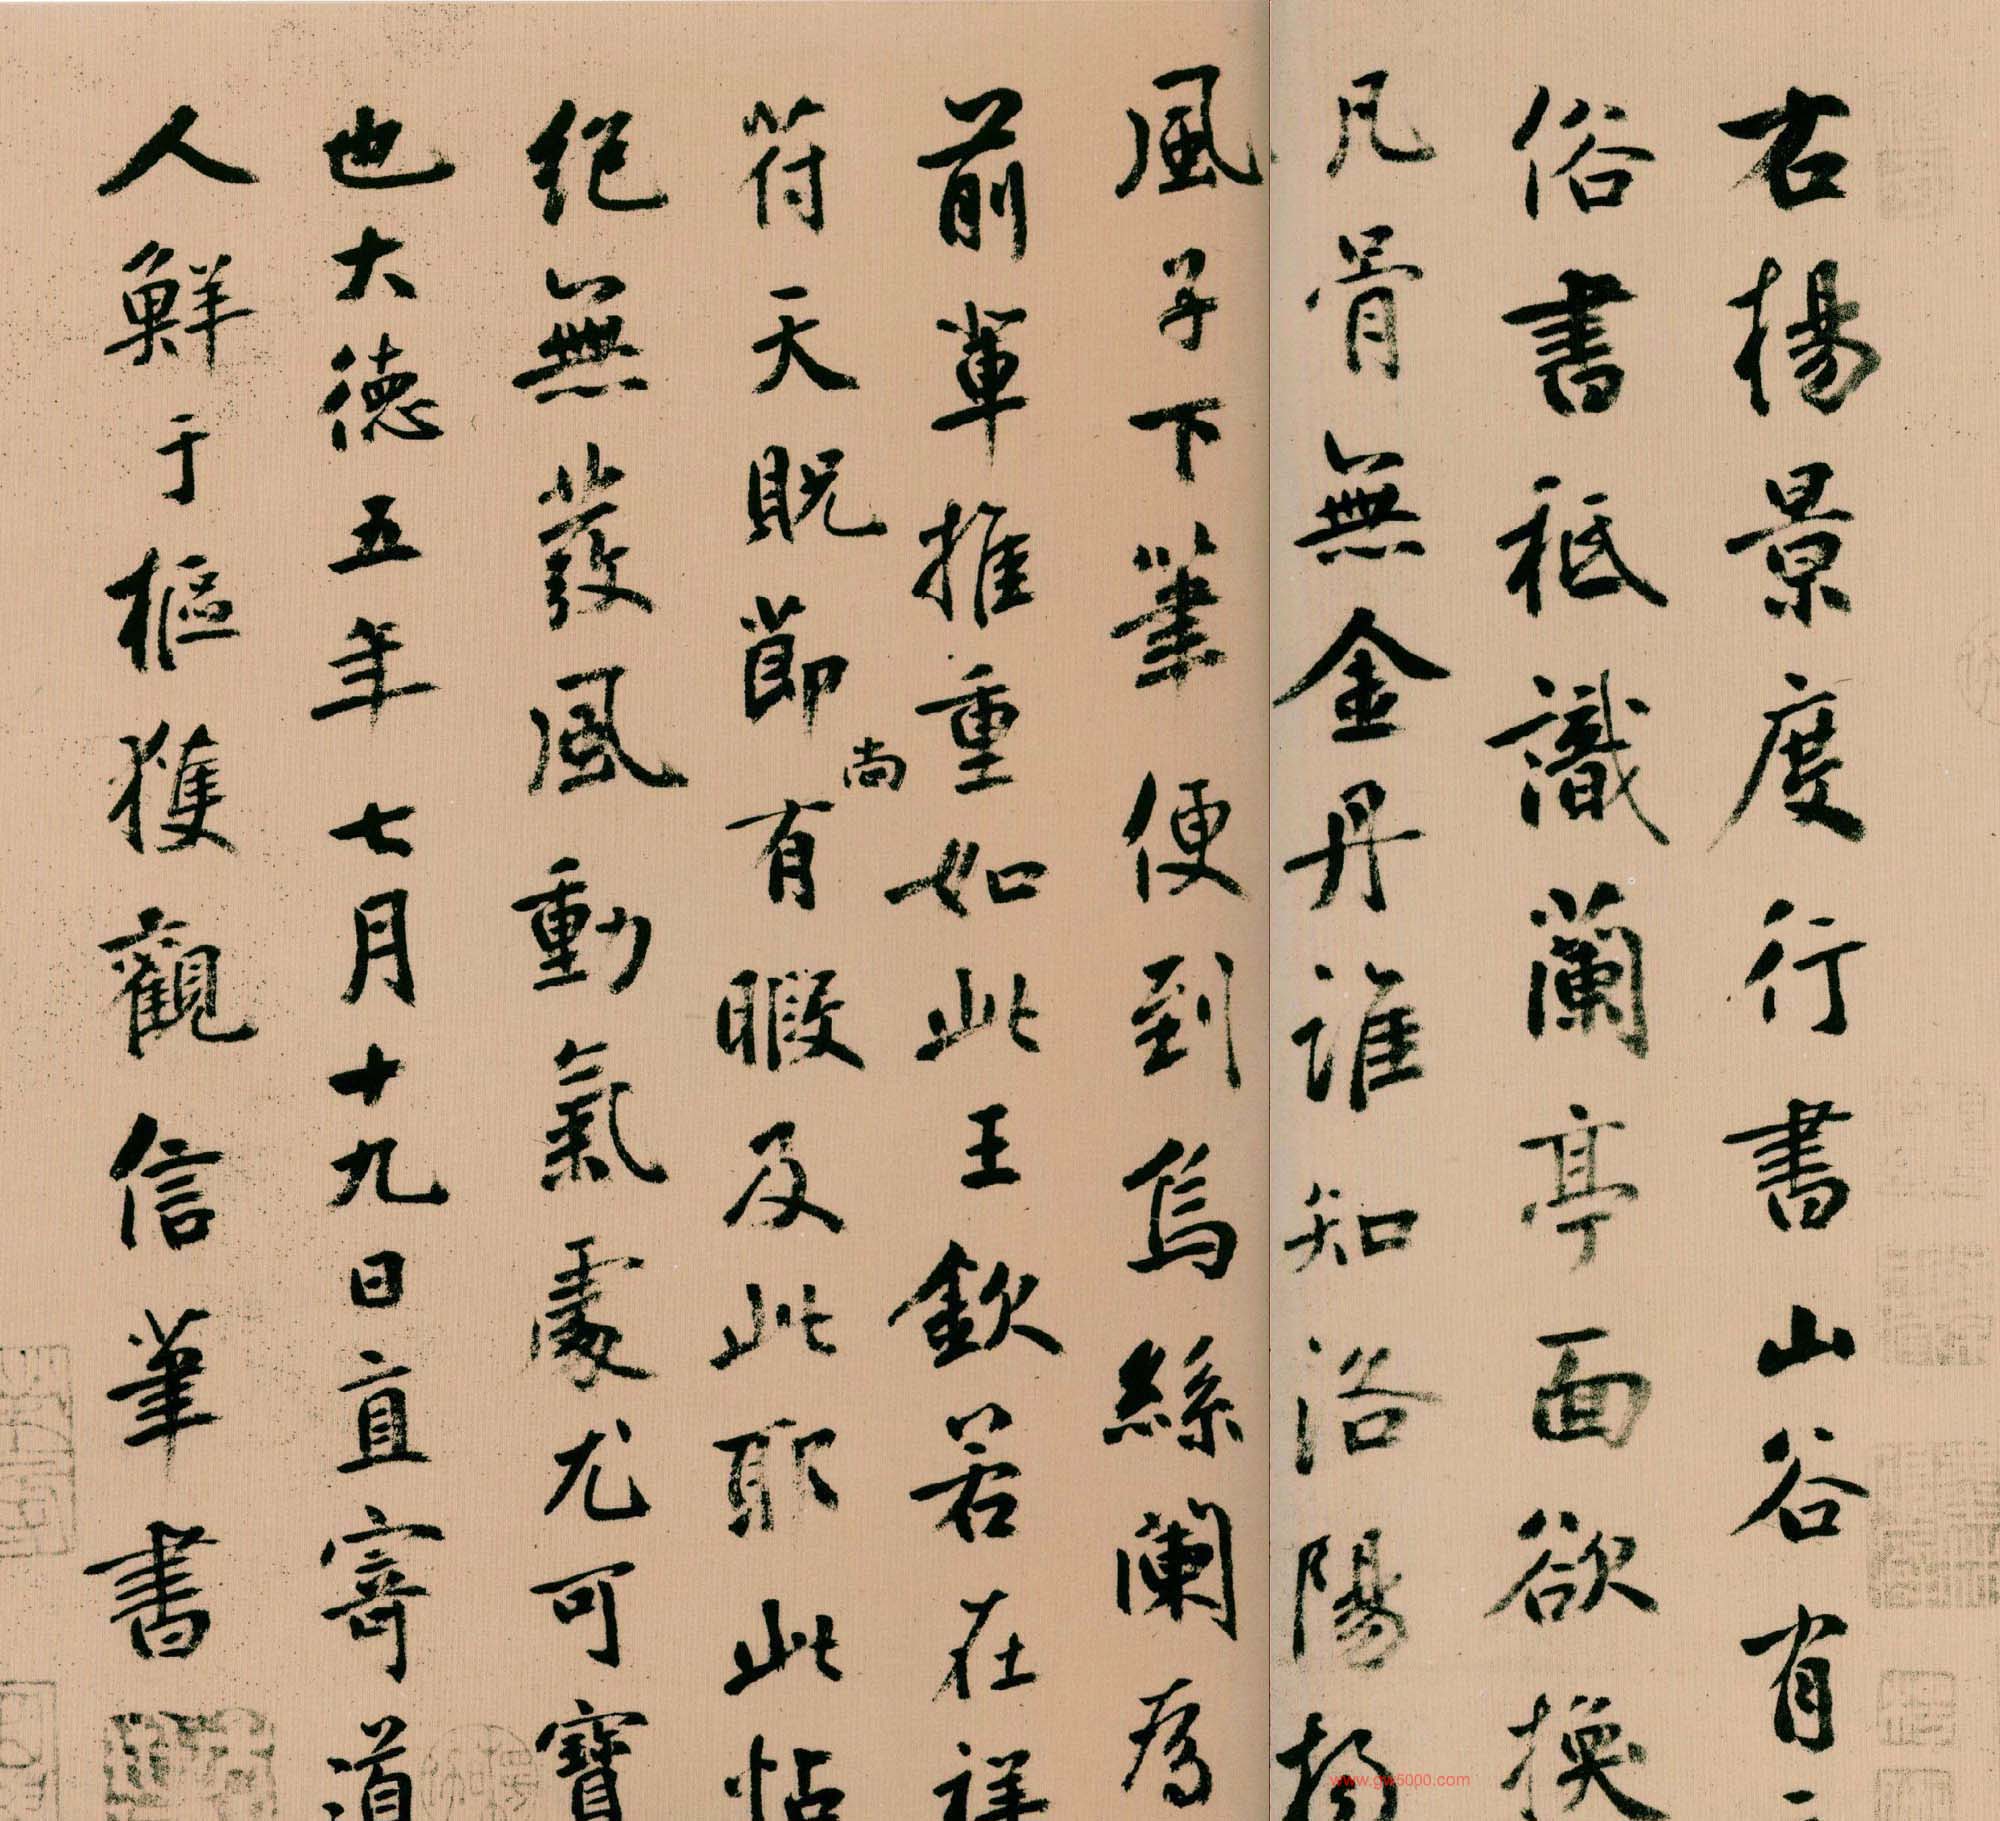 右楊景度行書山谷有云
俗書秖識蘭亭面欲換
凡骨無金丹誰知洛陽楊
風子下筆便到烏絲闌為
前輩推重如此王欽若在祥
符天貺節尚有暇及此耶此帖
絕無蕟風動氣處尤可寶
也大德五年七月十九日直寄道
人鮮于樞獲觀信筆書
www.gw5000.com